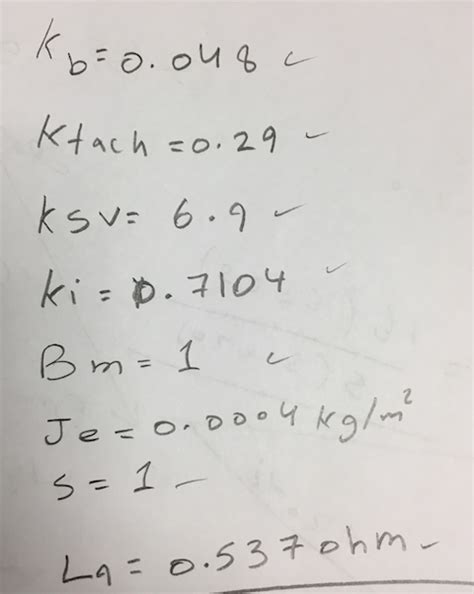 Kb = 0.048 ✓
Ktach = 0.29 ✓
Ksv = 6.9 ✓
Ki = 0.7104 ✓
Bm = 1 ✓
Je = 0.0004 kg/m²
S = 1 –
La = 0.537 ohm ✓